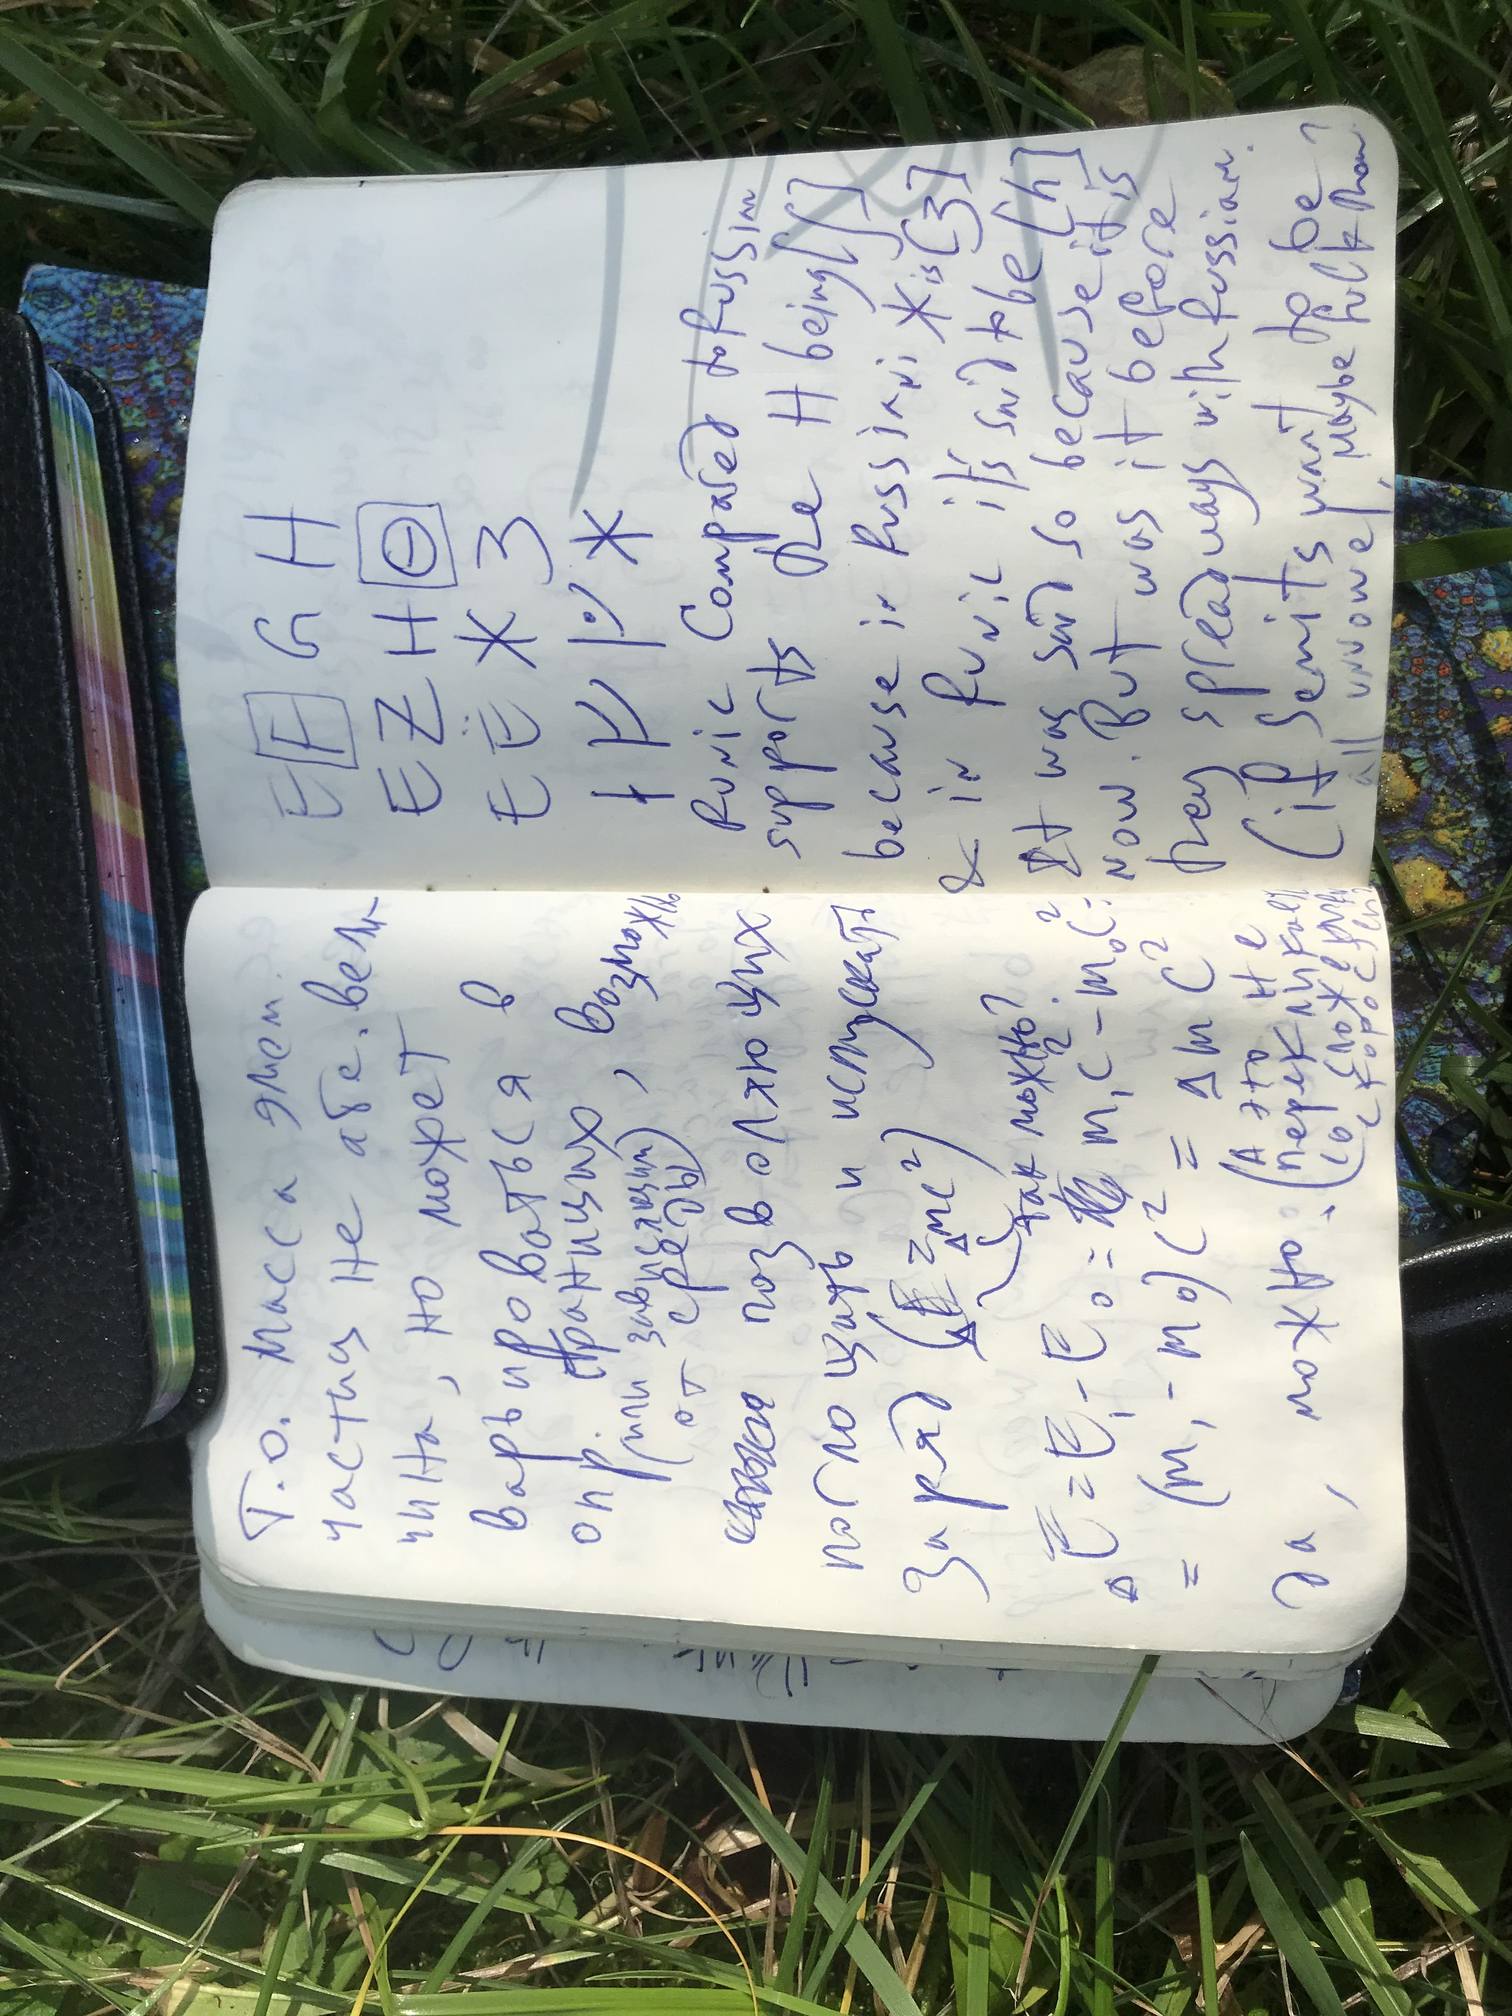 Т.о. масса элем.
частиц не абс. вели-
чина, но может
варьироваться в
опр. границах, возможно
(или зависящим
от среды)
позволяющих
поглощать и испускать
заряд (ΔE = Δmc²)
так можно?
ΔE = E₁ - E₀ = m₁c² - m₀c² =
= (m₁ - m₀)c² = Δmc²
да, можно.
(А это не
перекликает
со сложением
скоростей?
E F G H
E Z H Θ
E Ё Ж З
ᚼ
Runic compared to Russian
supports the H being [ ]
because in Russian i Ж is [З]
& in Runic it's said to be [h]
It was said so because it is
now. But was it before
they spread ways with Russian.
(if Semits want to be
all unowe, maybe fulk them